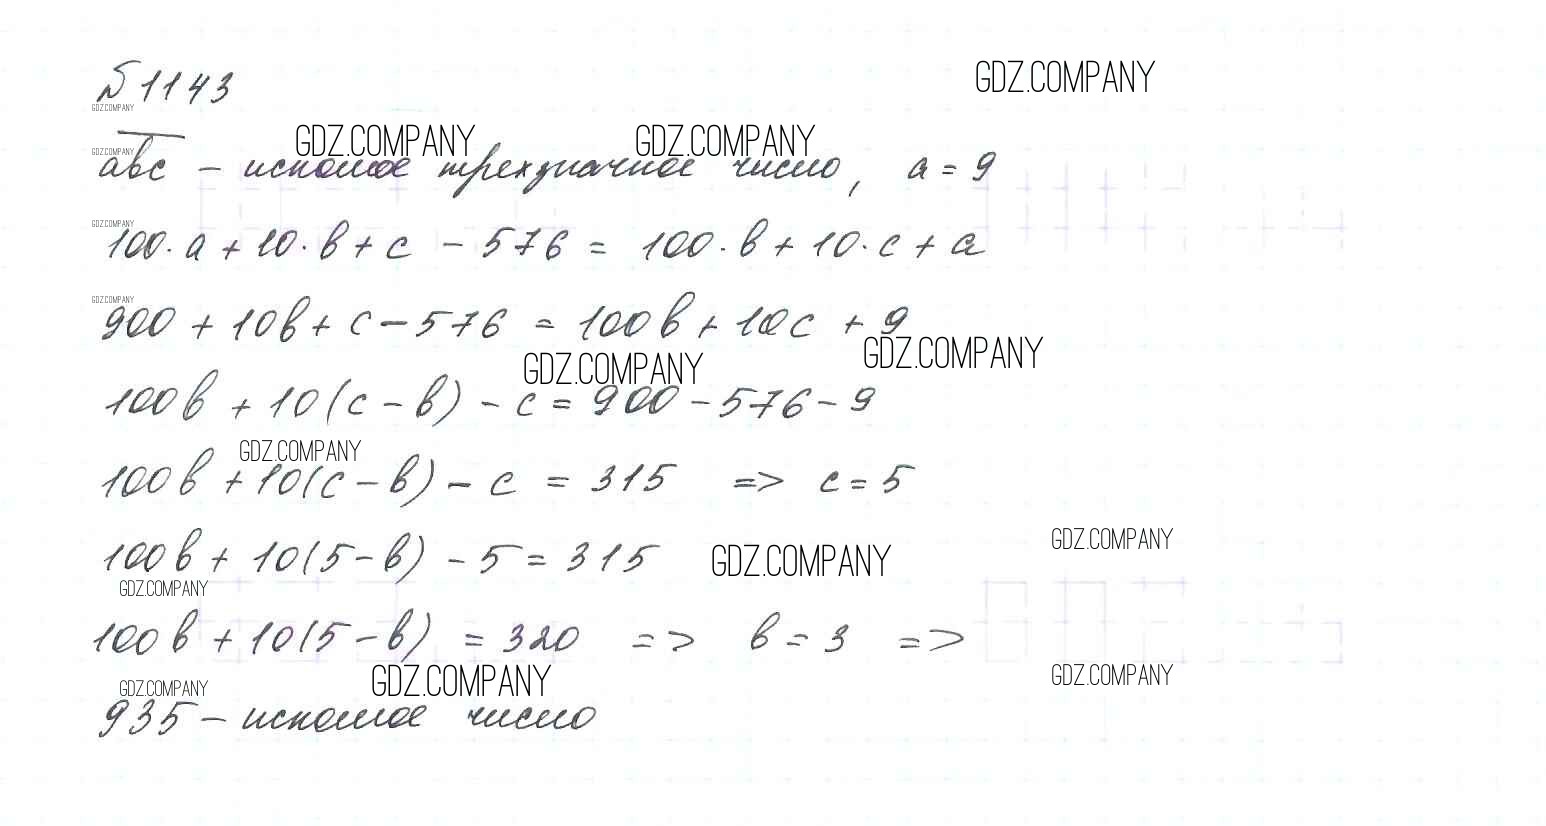 №1143
GDZ.COMPANY
GDZ.COMPANY
GDZ.COMPANY GDZ.COMPANY
GDZ.COMPANY
abc - искомое трехзначное число, a = 9
GDZ.COMPANY
100·a + 10·b + c - 576 = 100·b + 10·c + a
GDZ.COMPANY
900 + 10b + c - 576 = 100b + 10c + 9
GDZ.COMPANY GDZ.COMPANY
100b + 10(c - b) - c = 900 - 576 - 9
GDZ.COMPANY
100b + 10(c - b) - c = 315 => c = 5
GDZ.COMPANY
100b + 10(5 - b) - 5 = 315 GDZ.COMPANY
GDZ.COMPANY
100b + 10(5 - b) = 320 => b = 3 =>
GDZ.COMPANY GDZ.COMPANY GDZ.COMPANY
935 - искомое число